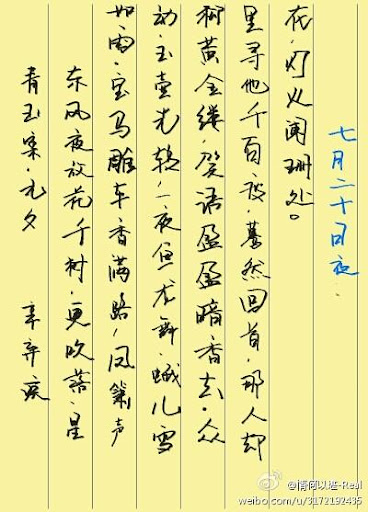 青玉案·元夕 辛弃疾
东风夜放花千树·更吹落·星
如雨·宝马雕车香满路·凤箫声
动·玉壶光转·一夜鱼龙舞·蛾儿雪
柳黄金缕·笑语盈盈暗香去·众
里寻他千百度·蓦然回首·那人却
在·灯火阑珊处。
七月二十日夜.
@情何以堪-Real
weibo.com/u/3172192435